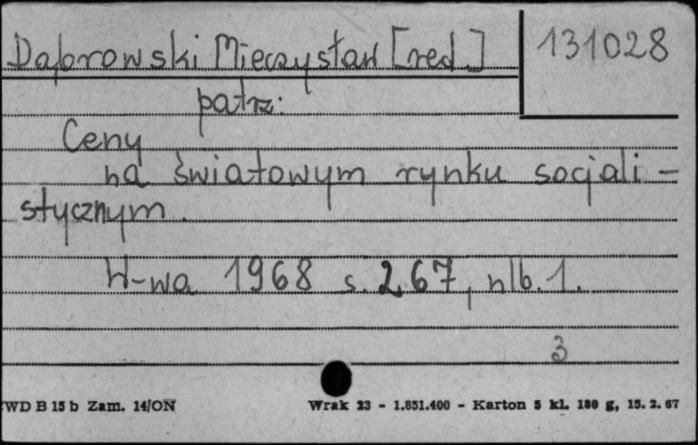 Dąbrowski Mieczysław [red.]
131028
patrz:
Ceny
na światowym rynku socjali-
stycznym.
W-wa 1968 s. 267, nlb. 1.
3
WD B 15 b Zam. 14/ON
Wrak 23 - 1.851.400 - Karton 5 kl. 180 g, 15. 2. 67